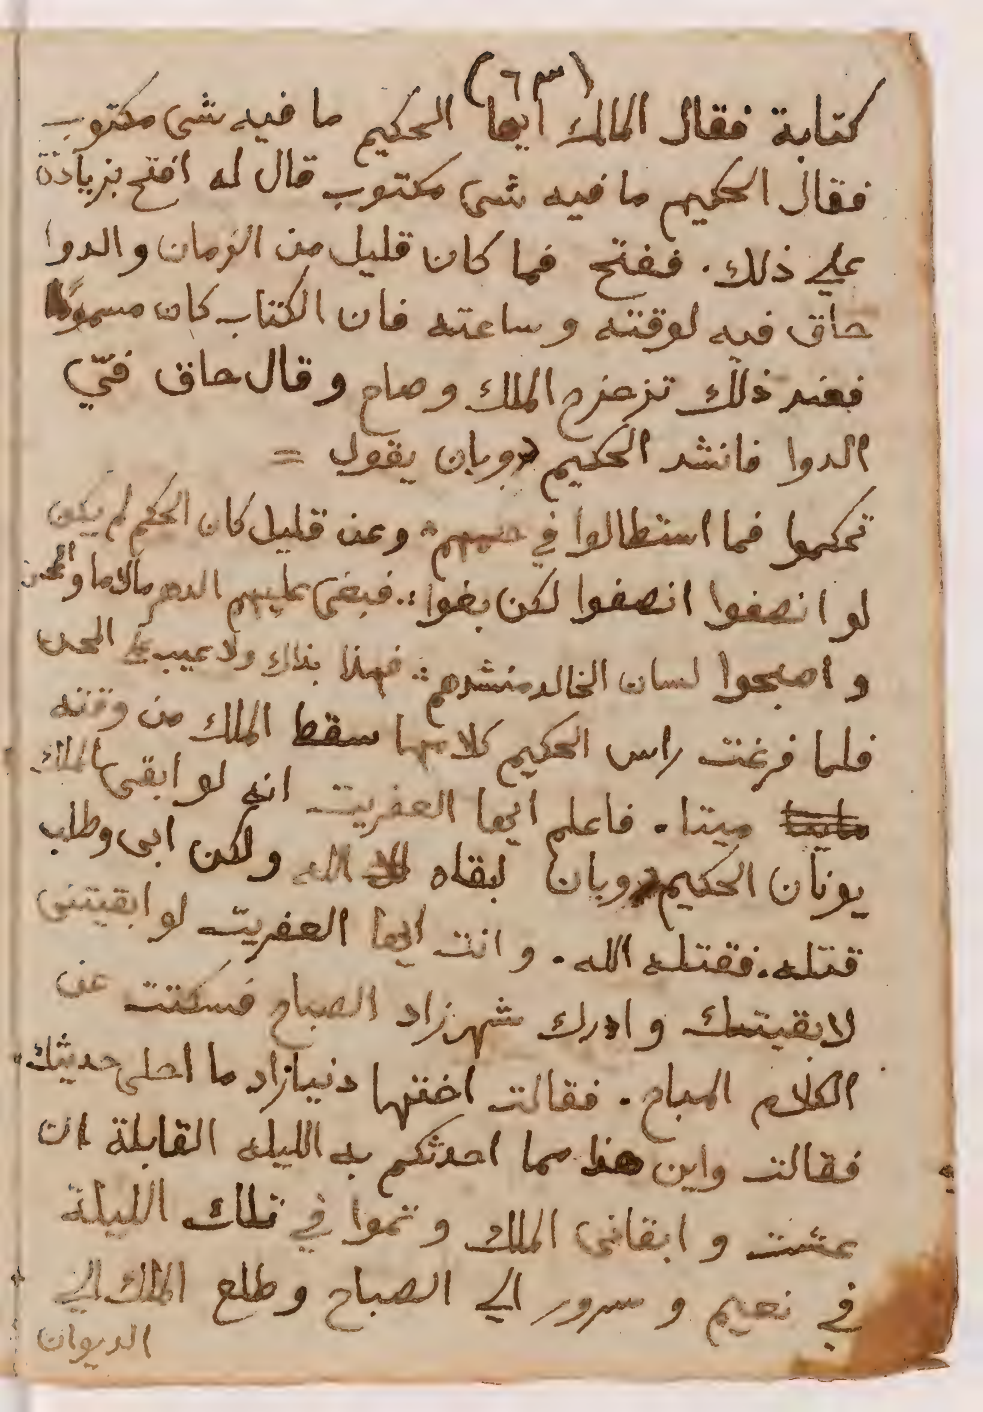 (٦٣)
كتابة فقال المالك ايها الحكيم ما فيه شي مكتوب
فقال الحكيم ما فيه شي مكتوب قال له افتح بزيادة
علي ذلك. ففتح فما كان قليل من الزمان والدوا
حاق فيه لوقته وساعته فان الكتاب كان مسموما
فعند ذلك تزحزح الملك وصاح وقال حاق فيّ
الدوا فانشد الحكيم دوبان يقول =
تحكموا فما استطالوا في حكمهم وعن قليل كان الحكم لم يكن
لو انصفوا انصفوا لكن بغوا فبغى عليهم الدهر مالاما والمحن
و اصبحوا لسان الخالد منشدهم فهذا بذاك ولا عيب على المحن
فلما فرغت راس الحكيم كلامها سقط الملك من وقته
ميتا. فاعلم ايها العفريت انه لو ابقى الملك
يونان الحكيم دوبان لبقاه الله ولكن ابى وطلب
قتله. فقتله الله. وانت ايها العفريت لو ابقيتني
لابقيتك و ادرك شهرزاد الصباح فسكتت عن
الكلام المباح. فقالت اختها دنيازاد ما احلى حديثك
فقالت واين هذا مما احدثكم به الليله القابلة ان
عشت و ابقاني الملك و تموا في تلك الليلة
في نعيم و سرور الي الصباح و طلع الملك الي
الديوان